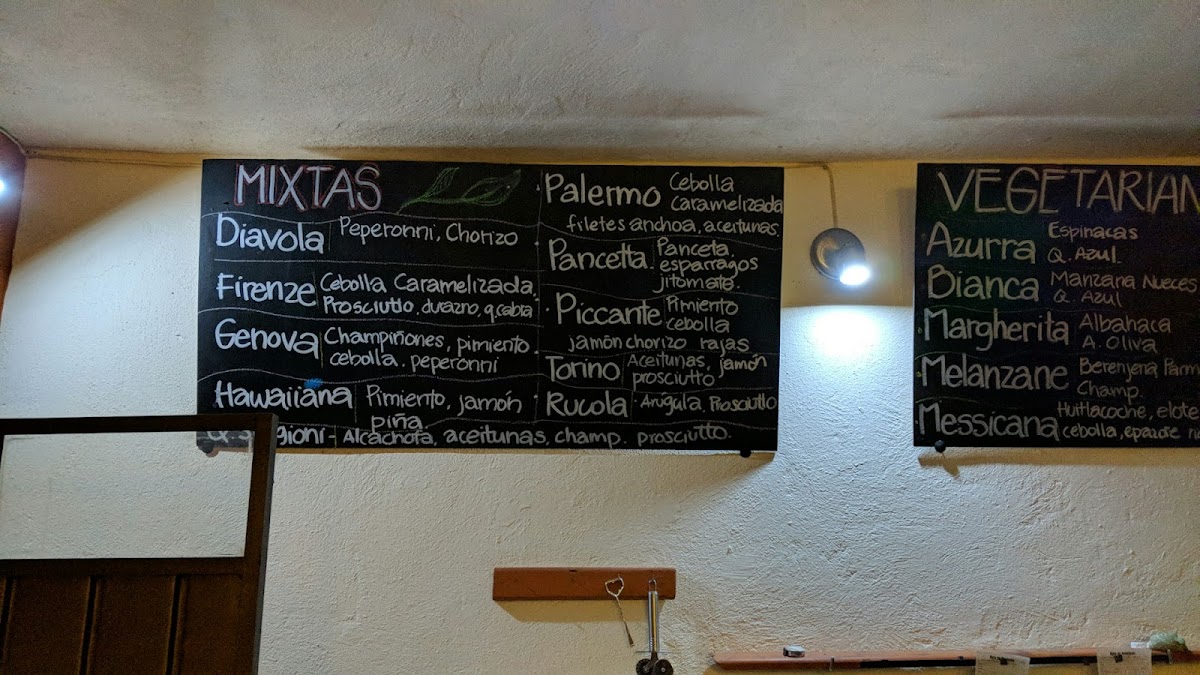 MIXTAS
Diavola Peperonni, Chorizo
Firenze Cebolla Caramelizada,
Prosciutto, durazno, q.cabra
Genova Champiñones, pimiento
cebolla. peperonni
Hawaiiana Pimiento, jamón
piña
Alcachofa, aceitunas, champ. prosciutto.
Palermo Cebolla
Caramelizada
filetes anchoa, aceitunas.
Pancetta. Panceta,
esparragos
jitomate.
Piccante Pimiento
cebolla
jamón chorizo rajas
Torino Aceitunas, jamón
prosciutto
Rucola Arúgula, Prosciutto
VEGETARIAN
Azurra Espinacas
Q. Azul.
Bianca Manzana Nueces
Q. Azul
Margherita Albahaca
A. Oliva
Melanzane Berenjena Parm
Champ.
Messicana Huitlacoche, elote
cebolla,